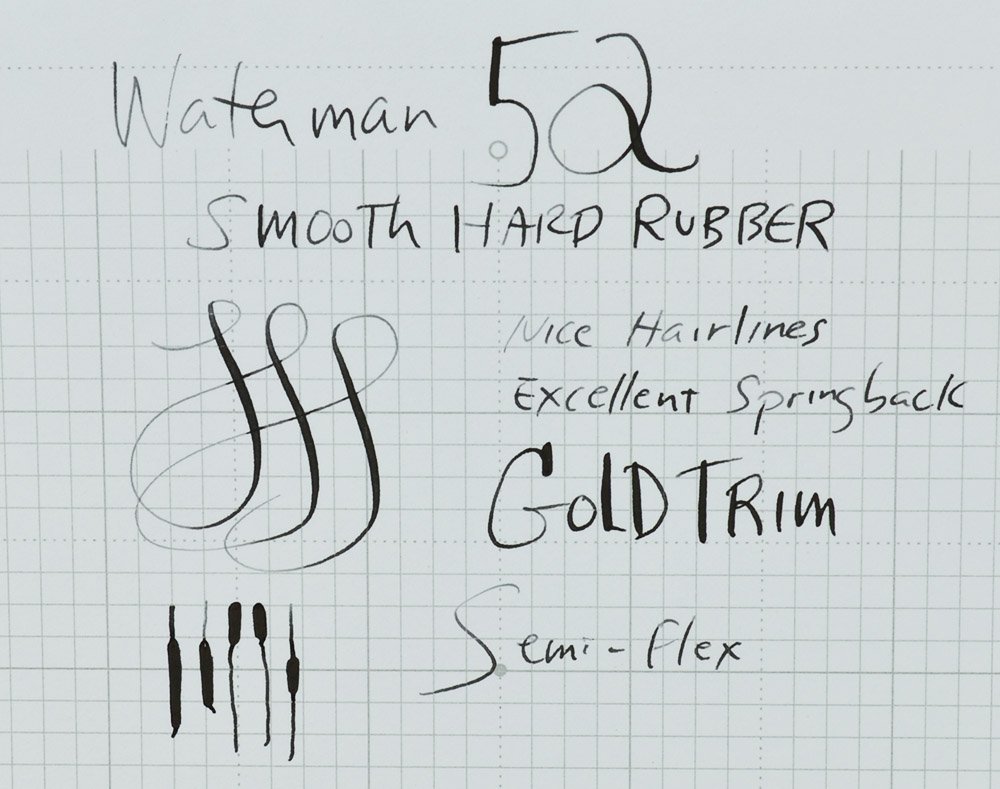 Waterman 52
SMOOTH HARD RUBBER
Nice Hairlines
Excellent Springback
GOLD TRIM
Semi-flex